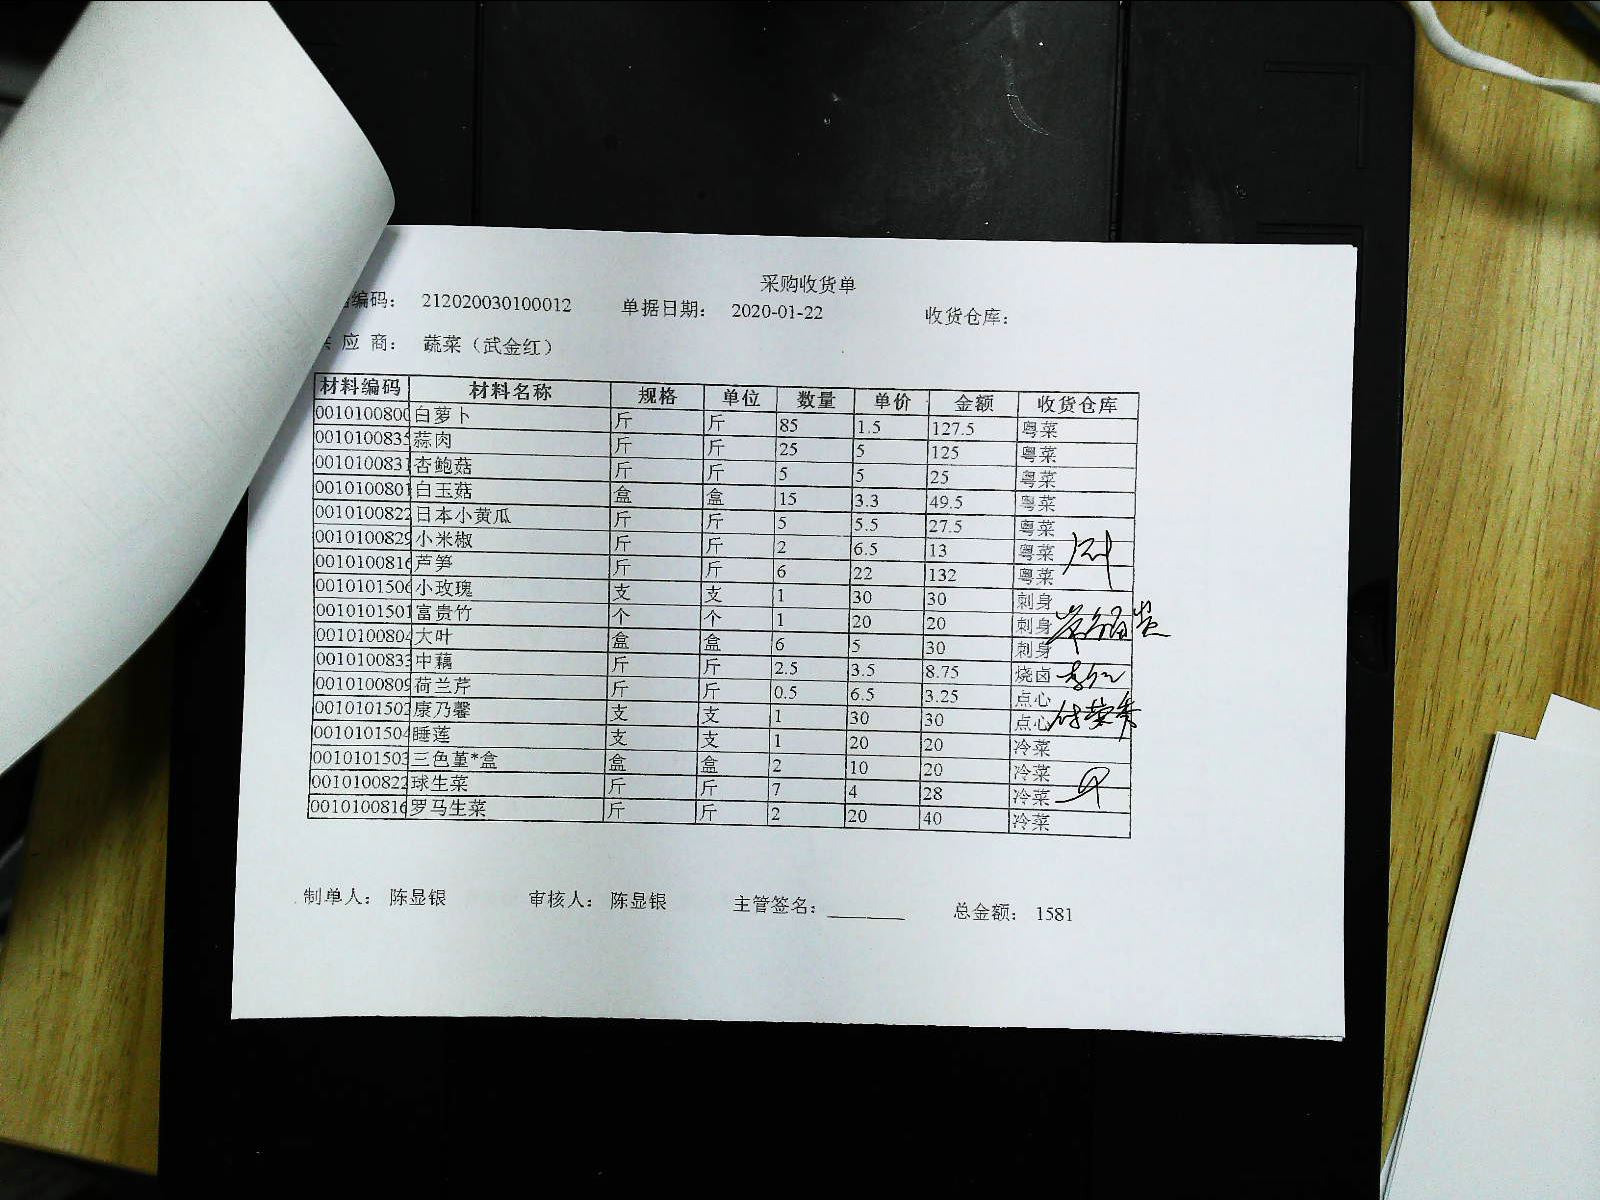 采购收货单
编码： 212020030100012 单据日期： 2020-01-22 收货仓库：
应 商： 蔬菜（武金红）
材料编码 材料名称 规格 单位 数量 单价 金额 收货仓库
0010100800 白萝卜 斤 斤 85 1.5 127.5 粤菜
001010083 蒜肉 斤 斤 25 5 125 粤菜
001010083 杏鲍菇 斤 斤 5 5 25 粤菜
001010080 白玉菇 盒 盒 15 3.3 49.5 粤菜
0010100822 日本小黄瓜 斤 斤 5 5.5 27.5 粤菜
0010100829 小米椒 斤 斤 2 6.5 13 粤菜
0010100816 芦笋 斤 斤 6 22 132 粤菜
0010101506 小玫瑰 支 支 1 30 30 刺身
0010101501 富贵竹 个 个 1 20 20 刺身
0010100804 大叶 盒 盒 6 5 30 刺身
0010100833 中藕 斤 斤 2.5 3.5 8.75 烧卤
0010100809 荷兰芹 斤 斤 0.5 6.5 3.25 点心
0010101502 康乃馨 支 支 1 30 30 点心
0010101504 睡莲 支 支 1 20 20 冷菜
0010101503 三色堇*盒 盒 盒 2 10 20 冷菜
0010100822 球生菜 斤 斤 7 4 28 冷菜
0010100816 罗马生菜 斤 斤 2 20 40 冷菜
制单人： 陈显银 审核人： 陈显银 主管签名： 总金额： 1581